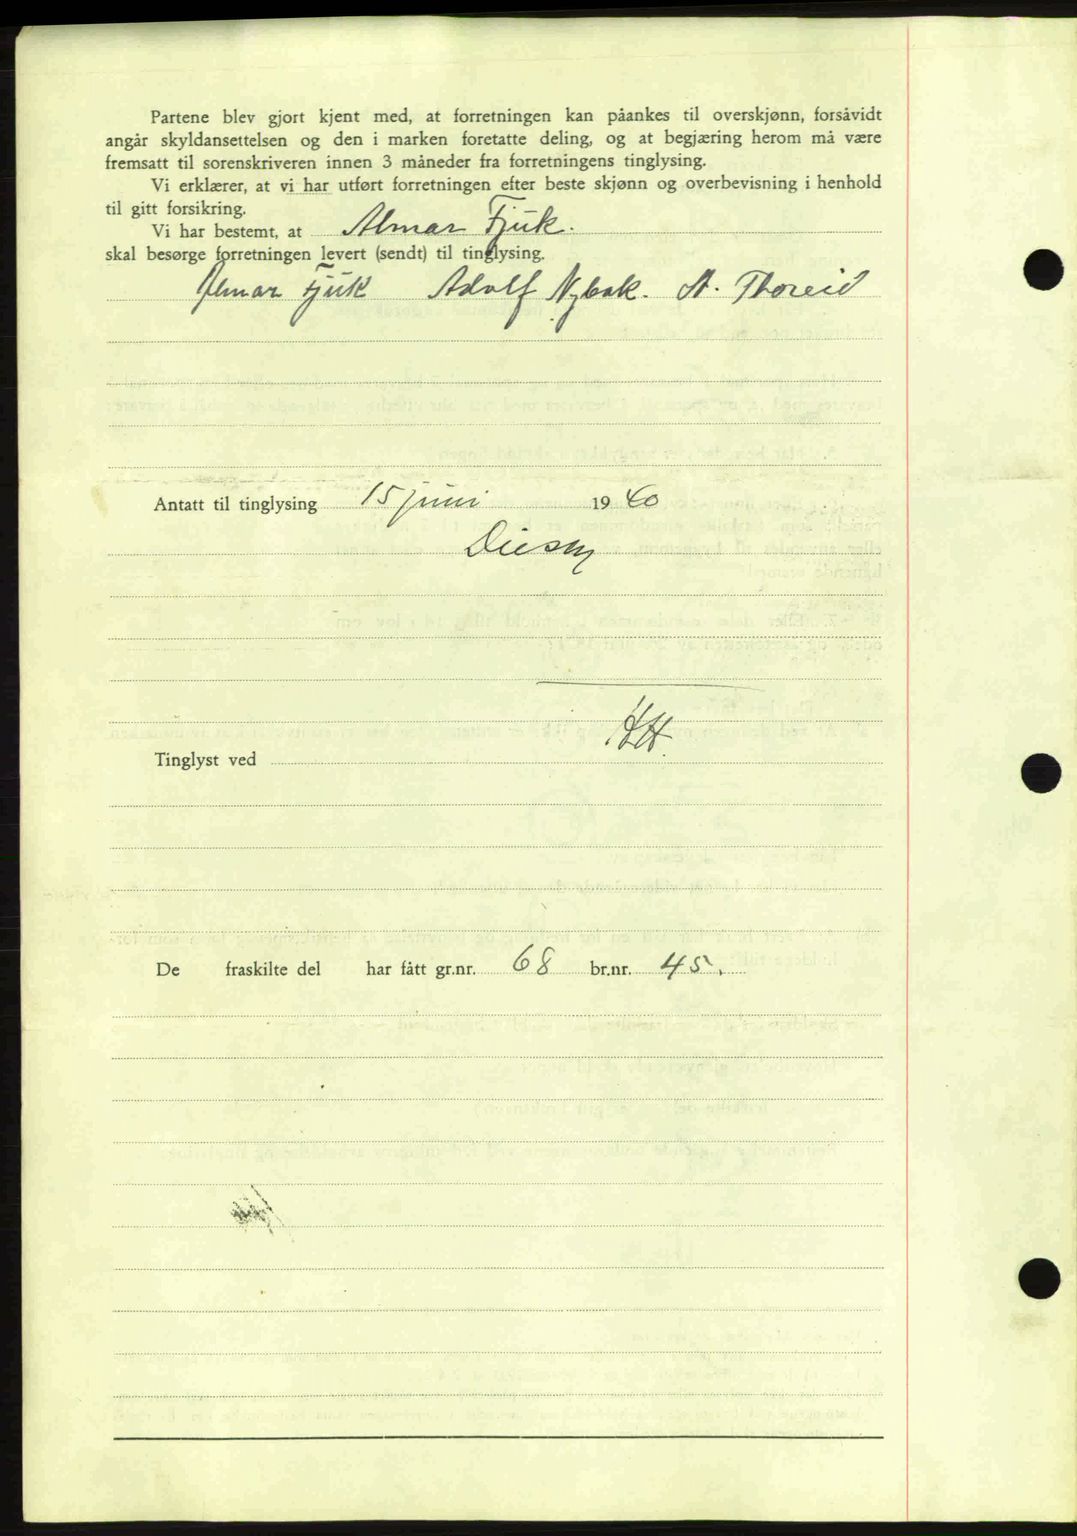 Partene blev gjort kjent med, at forretningen kan påankes til overskjønn, forsåvidt
angår skyldansettelsen og den i marken foretatte deling, og at begjæring herom må være
fremsatt til sorenskriveren innen 3 måneder fra forretningens tinglysing.
Vi erklærer, at vi har utført forretningen efter beste skjønn og overbevisning i henhold
til gitt forsikring.
Vi har bestemt, at Almar Fjuk.
skal besørge forretningen levert (sendt) til tinglysing.
Almar Fjuk Adolf Nybak. A. Thoreid
Antatt til tinglysing 15 juni 1940
Tinglyst ved
De fraskilte del har fått gr.nr. 68 br.nr. 45.